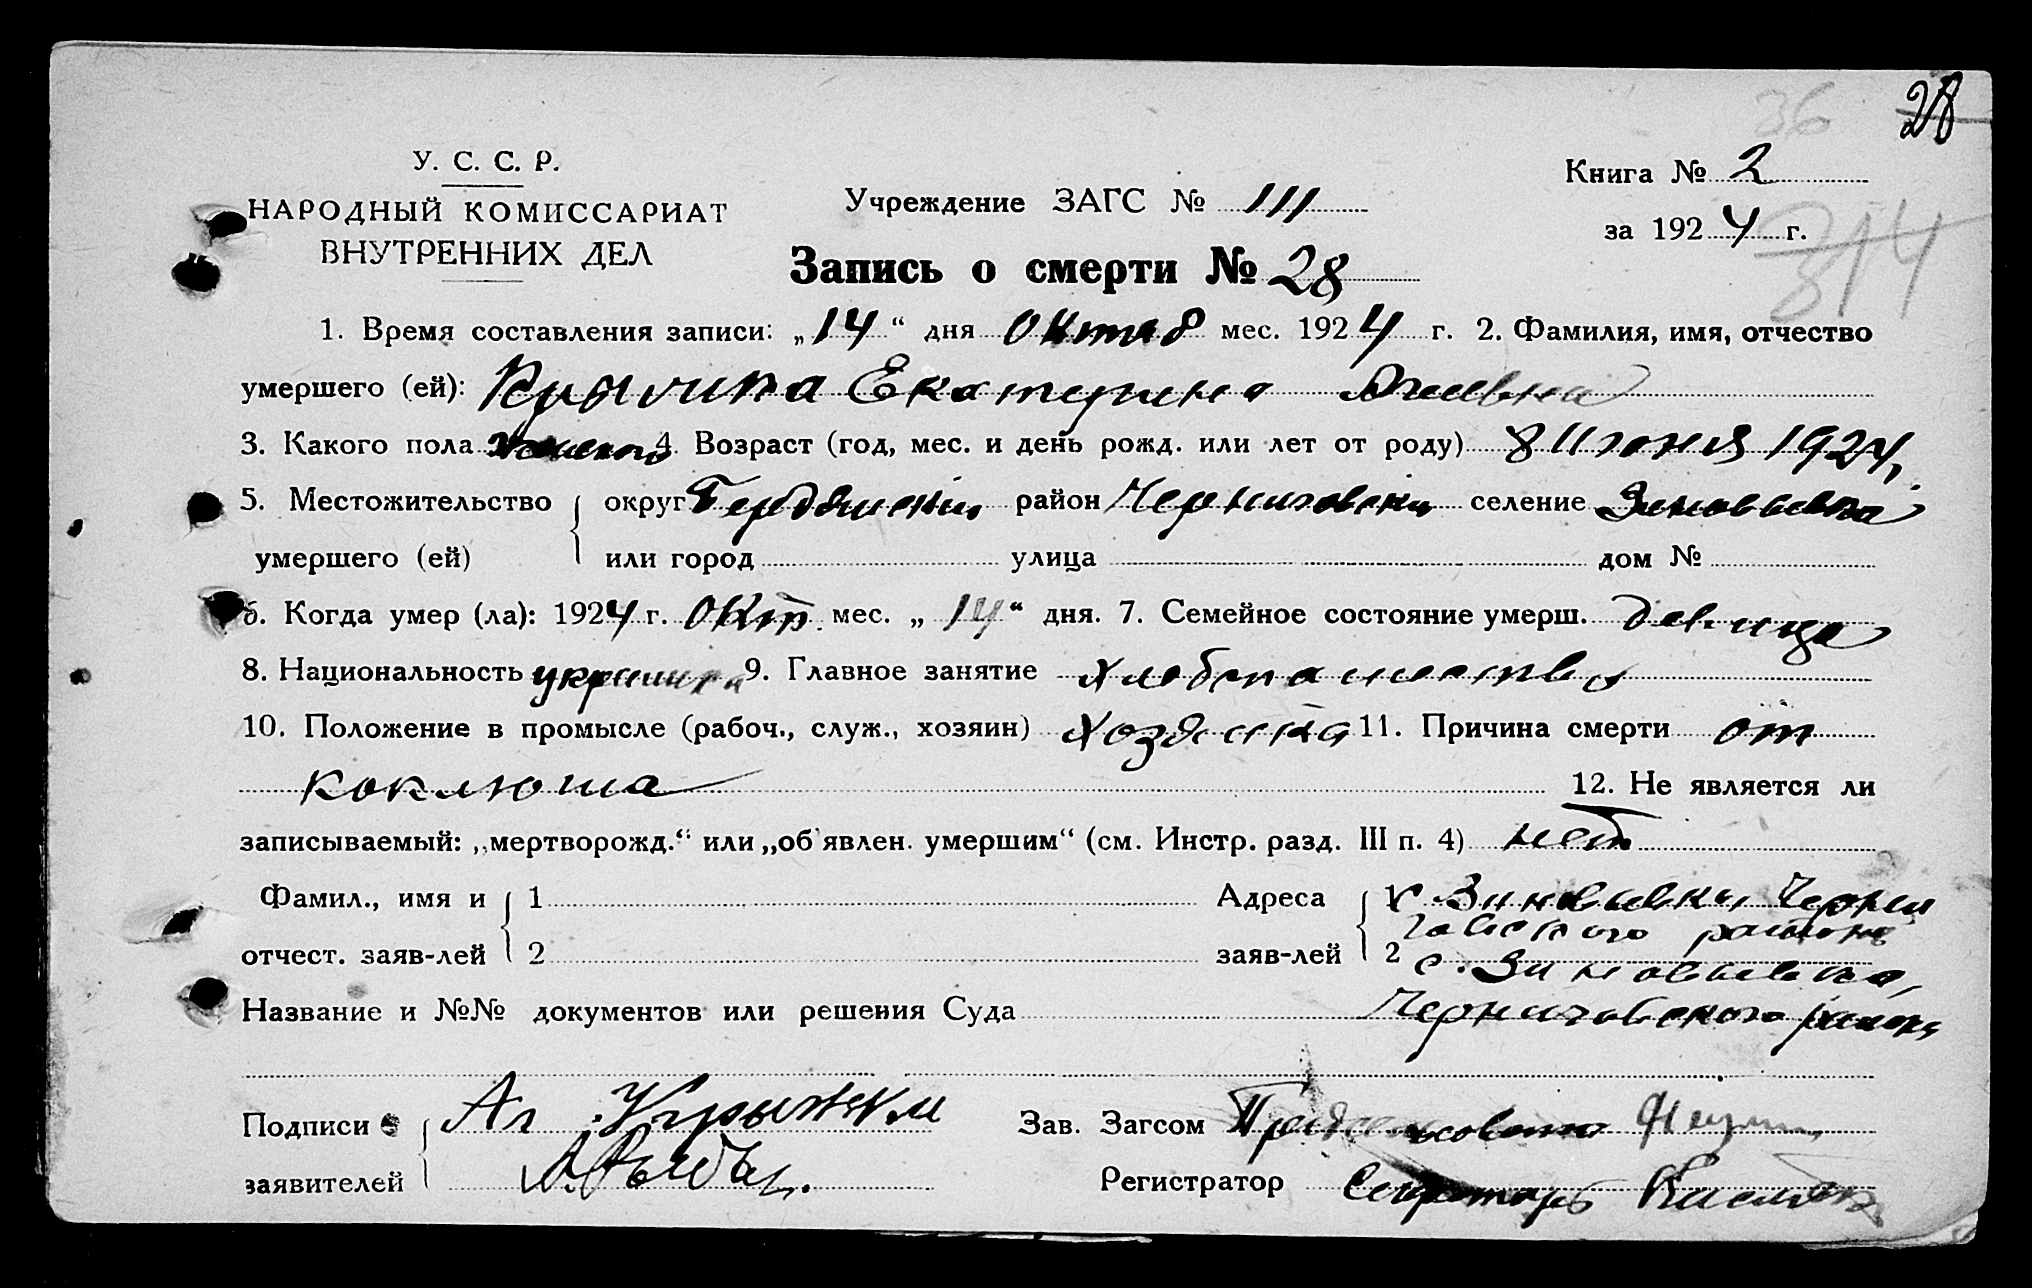 36 28
У. С. С. Р.
НАРОДНЫЙ КОМИССАРИАТ
ВНУТРЕННИХ ДЕЛ
Учреждение ЗАГС № 111
Книга № 2
за 1924 г.
314
Запись о смерти № 28
1. Время составления записи: „14“ дня Октяб мес. 1924 г. 2. Фамилия, имя, отчество
умершего (ей): Екатерина
3. Какого пола женского 4. Возраст (год, мес. и день рожд. или лет от роду) 8 Июня 1924,
5. Местожительство округ Бердянский район Черниговский селение Зиновьевка
умершего (ей) или город улица дом №
6. Когда умер (ла): 1924 г. Окт. мес. „14“ дня. 7. Семейное состояние умерш. девица
8. Национальность украинка 9. Главное занятие хлебопашество
10. Положение в промысле (рабоч., служ., хозяин) хозяйка 11. Причина смерти от
коклюша 12. Не является ли
записываемый: „мертворожд.“ или „об'явлен. умершим“ (см. Инстр. разд. III п. 4) нет
Фамил., имя и 1 Адреса Зиновьевки Черни
говского района
отчест. заяв-лей 2 заяв-лей 2 с. Зиновьевка,
Название и №№ документов или решения Суда Черниговского района
Подписи Зав. Загсом
заявителей Регистратор Секретарь